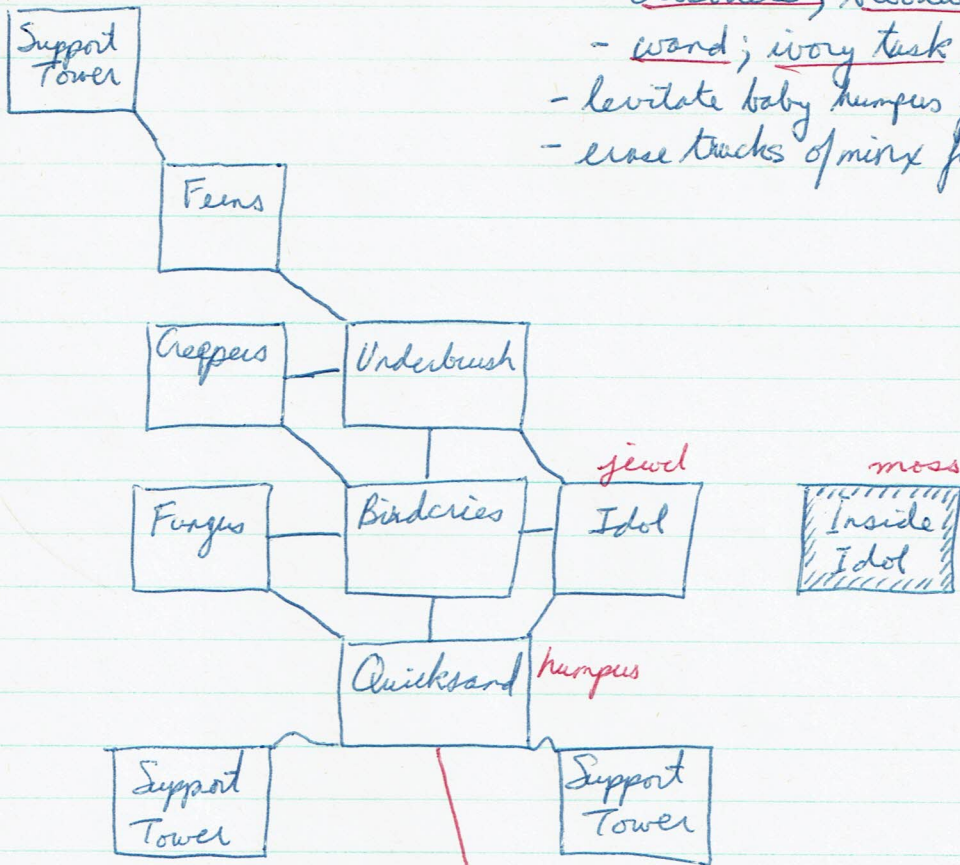 - wand; ivory tusk
- levitate baby humpus
- erase tracks of minx
Support
Tower
Ferns
Creepers
Underbrush
jewel
moss
Fungus
Birdcries
Idol
Inside
Idol
Quicksand
humpus
Support
Tower
Support
Tower